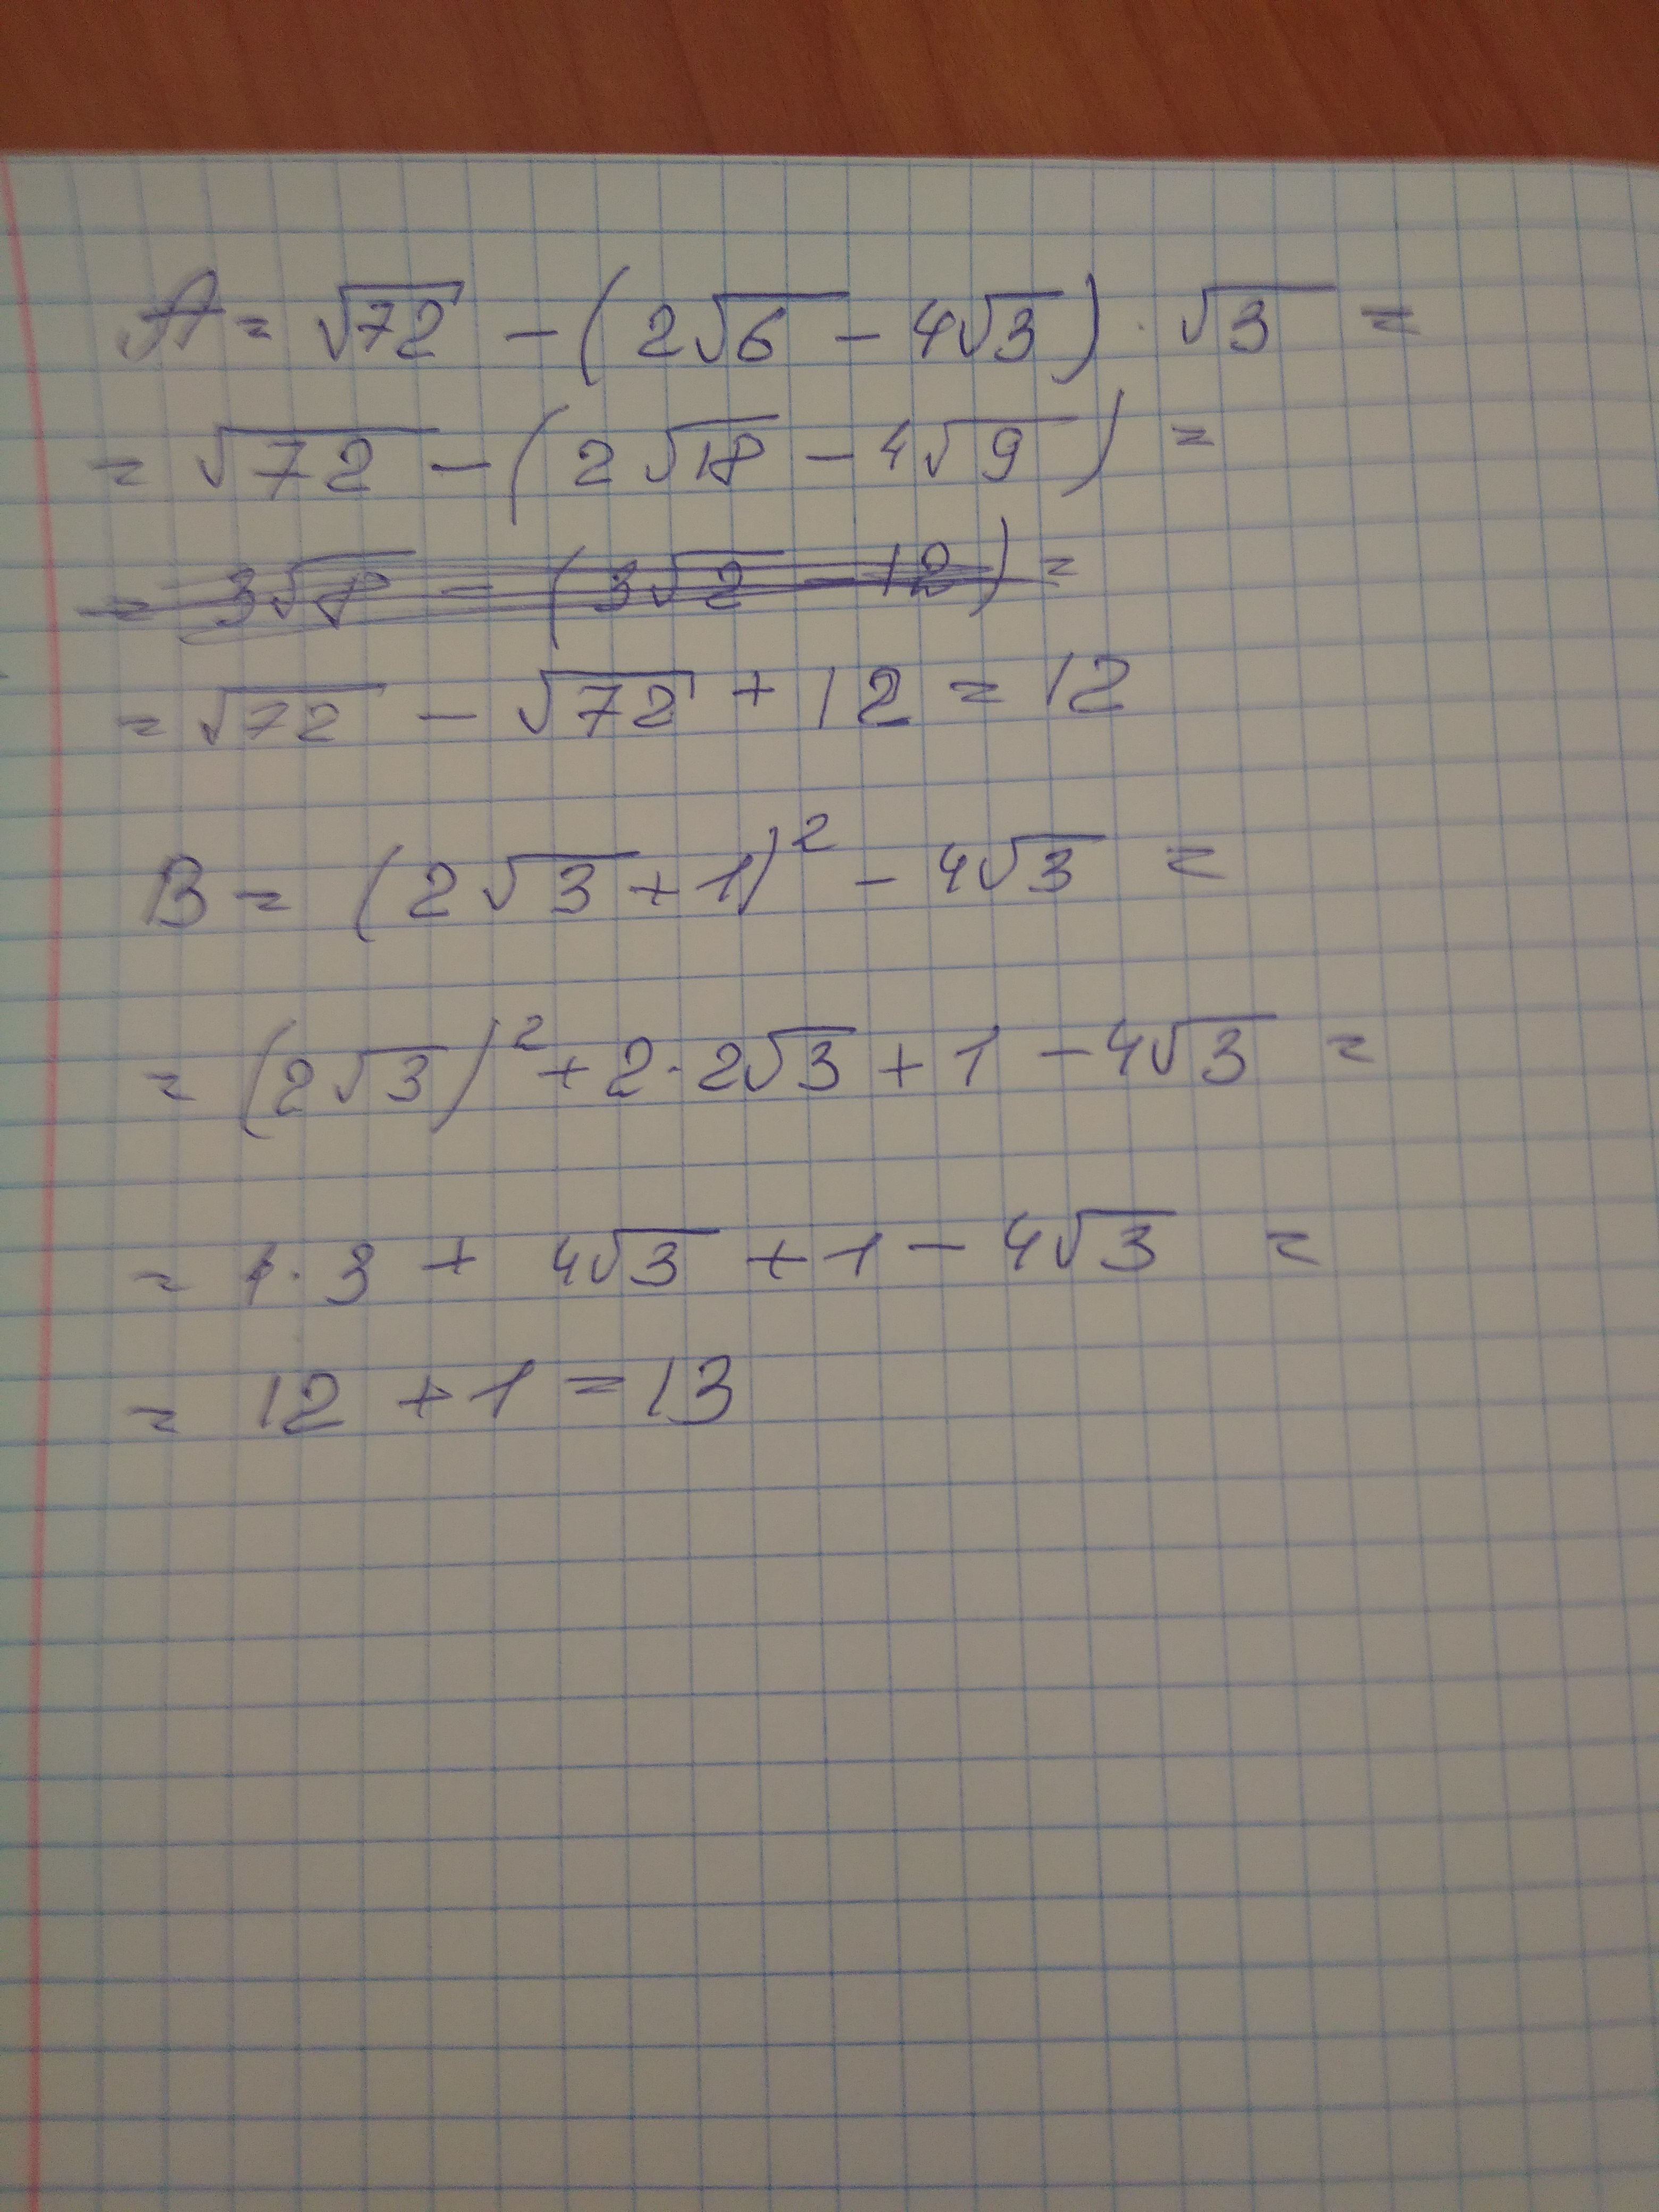 A = √72 − (2√6 − 4√3) · √3 =
= √72 − (2√18 − 4√9) =
= 3√8 − (3√2 − 12) =
= √72 − √72 + 12 = 12
B = (2√3 + 1)² − 4√3 =
= (2√3)² + 2·2√3 + 1 − 4√3 =
= 4·3 + 4√3 + 1 − 4√3 =
= 12 + 1 = 13